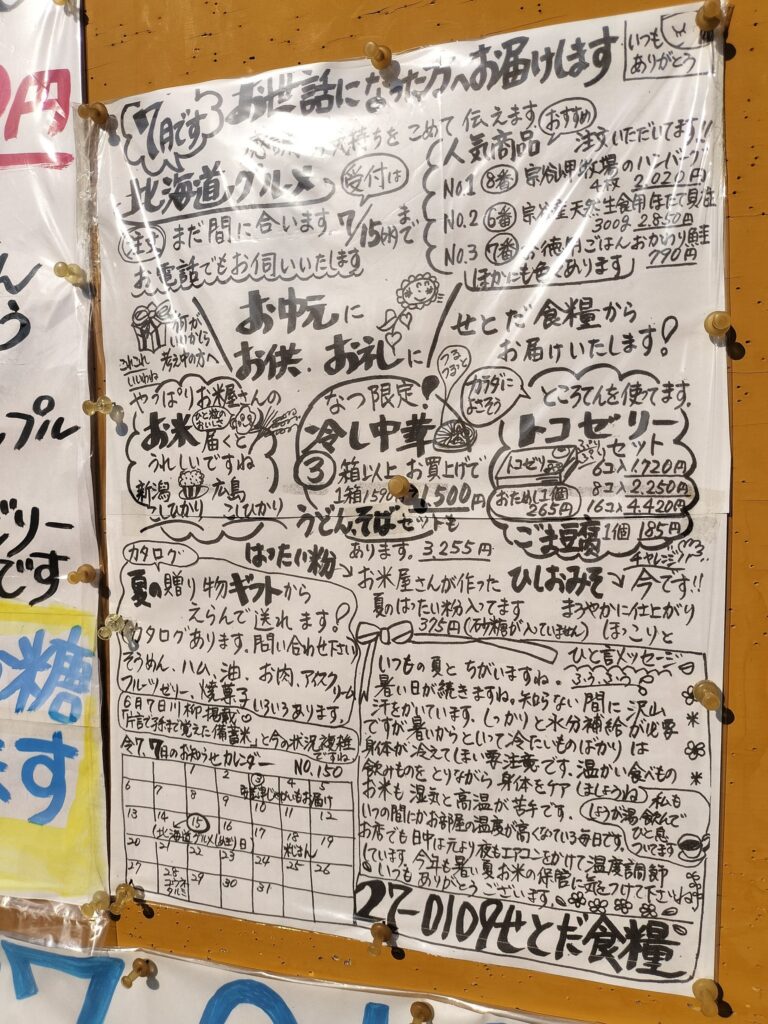 いつも
ありがとう
7月です
お世話になった方へお届けします
気持ちをこめて伝えます
北海道グルメ
受付は
7/15(火)まで
まだ間に合います
お電話でもお伺いいたします
人気商品
おすすめ
注文いただいてます!!
No.1 8番 宗谷岬牧場のハンバーグ
4枚 2,020円
No.2 6番 宗谷産天然生食用ほたて貝柱
300g 2,850円
No.3 7番 お徳用ごはんおかわり鮭
790円
ほかにも色々あります
何が
いいかしら
考え中の方へ
これこれ
いいわね
お中元に
お供、お礼に
せとだ食糧から
お届けいたします!
やっぱりお米屋さんの
お米
ひと粒の
おいしさ
届くと
うれしいですね
新潟
こしひかり
広島
こしひかり
なつ限定!
つるつるっと
冷し中華
③箱以上お買上げで
1箱1590円 1,500円
うどんそばセットも
あります。3,255円
カラダに
よさそう
ところてんを使てます。
トコゼリー
セット
トコゼリー
6コ入 1,720円
8コ入 2,250円
16コ入 4,420円
おためし1個
265円
ごま豆腐 1個 185円
チャレンジ
カタログ
夏の贈り物ギフトから
えらんで送れます!
カタログあります。問い合わせ下さい
そうめん、ハム、油、お肉、アイスクリーム
フルーツゼリー、焼菓子いろいろあります。
はったい粉
お米屋さんが作ったひしおみそ 今です!!
夏のはったい粉入ってます まろやかに仕上がり
375円(砂糖が入ていません) ほっこりと
6月7日川柳掲載
「片言で孫まで覚えた備蓄米」と今の状況複雑
ですね
令7.7月のお知らせカレンダー No.150
1 2 3 4 5
6 7 8 9 10 11 12
13 14 15 16 17 18 19
(北海道グルメ〆切り日)
20 21 22 23 24 25 26
27 28 29 30 31
ひと言メッセージ
ふぅふぅ
いつもの夏とちがいますね。
暑い日が続きますね。知らない間に沢山
汗をかいています。しっかりと水分補給が必要
ですが暑いからといって冷たいものばかりは
身体が冷えてしまい要注意です。温かい食べもの
飲みものをとりながら身体をケアしましょうね
お米も湿気と高温が苦手です。
いつの間にかお部屋の温度が高くなている毎日です。
お店でも日中は元より夜もエアコンをかけて温度調節
しています。今年も暑い夏お米の保管に気をつけて下さいね
いつもありがとうございます。
私も
しょうが湯飲んで
ひと息
ついてます
27-0109せとだ食糧